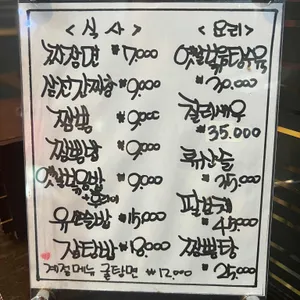 < 식 사 >
짜장면 ₩7,000
삼선간짜장 ₩9,000
짬뽕 ₩9,000
짬뽕밥 ₩9,000
옛날볶음밥 ₩9,000
유산슬밥 ₩15,000
잡탕밥 ₩18,000
계절메뉴 굴탕면 ₩12,000
< 요리 >
옛날볶음탕수육
₩30.000
칠리새우
₩35.000
류산슬
₩35.000
팔보채
₩45.000
짬뽕탕
₩25.000